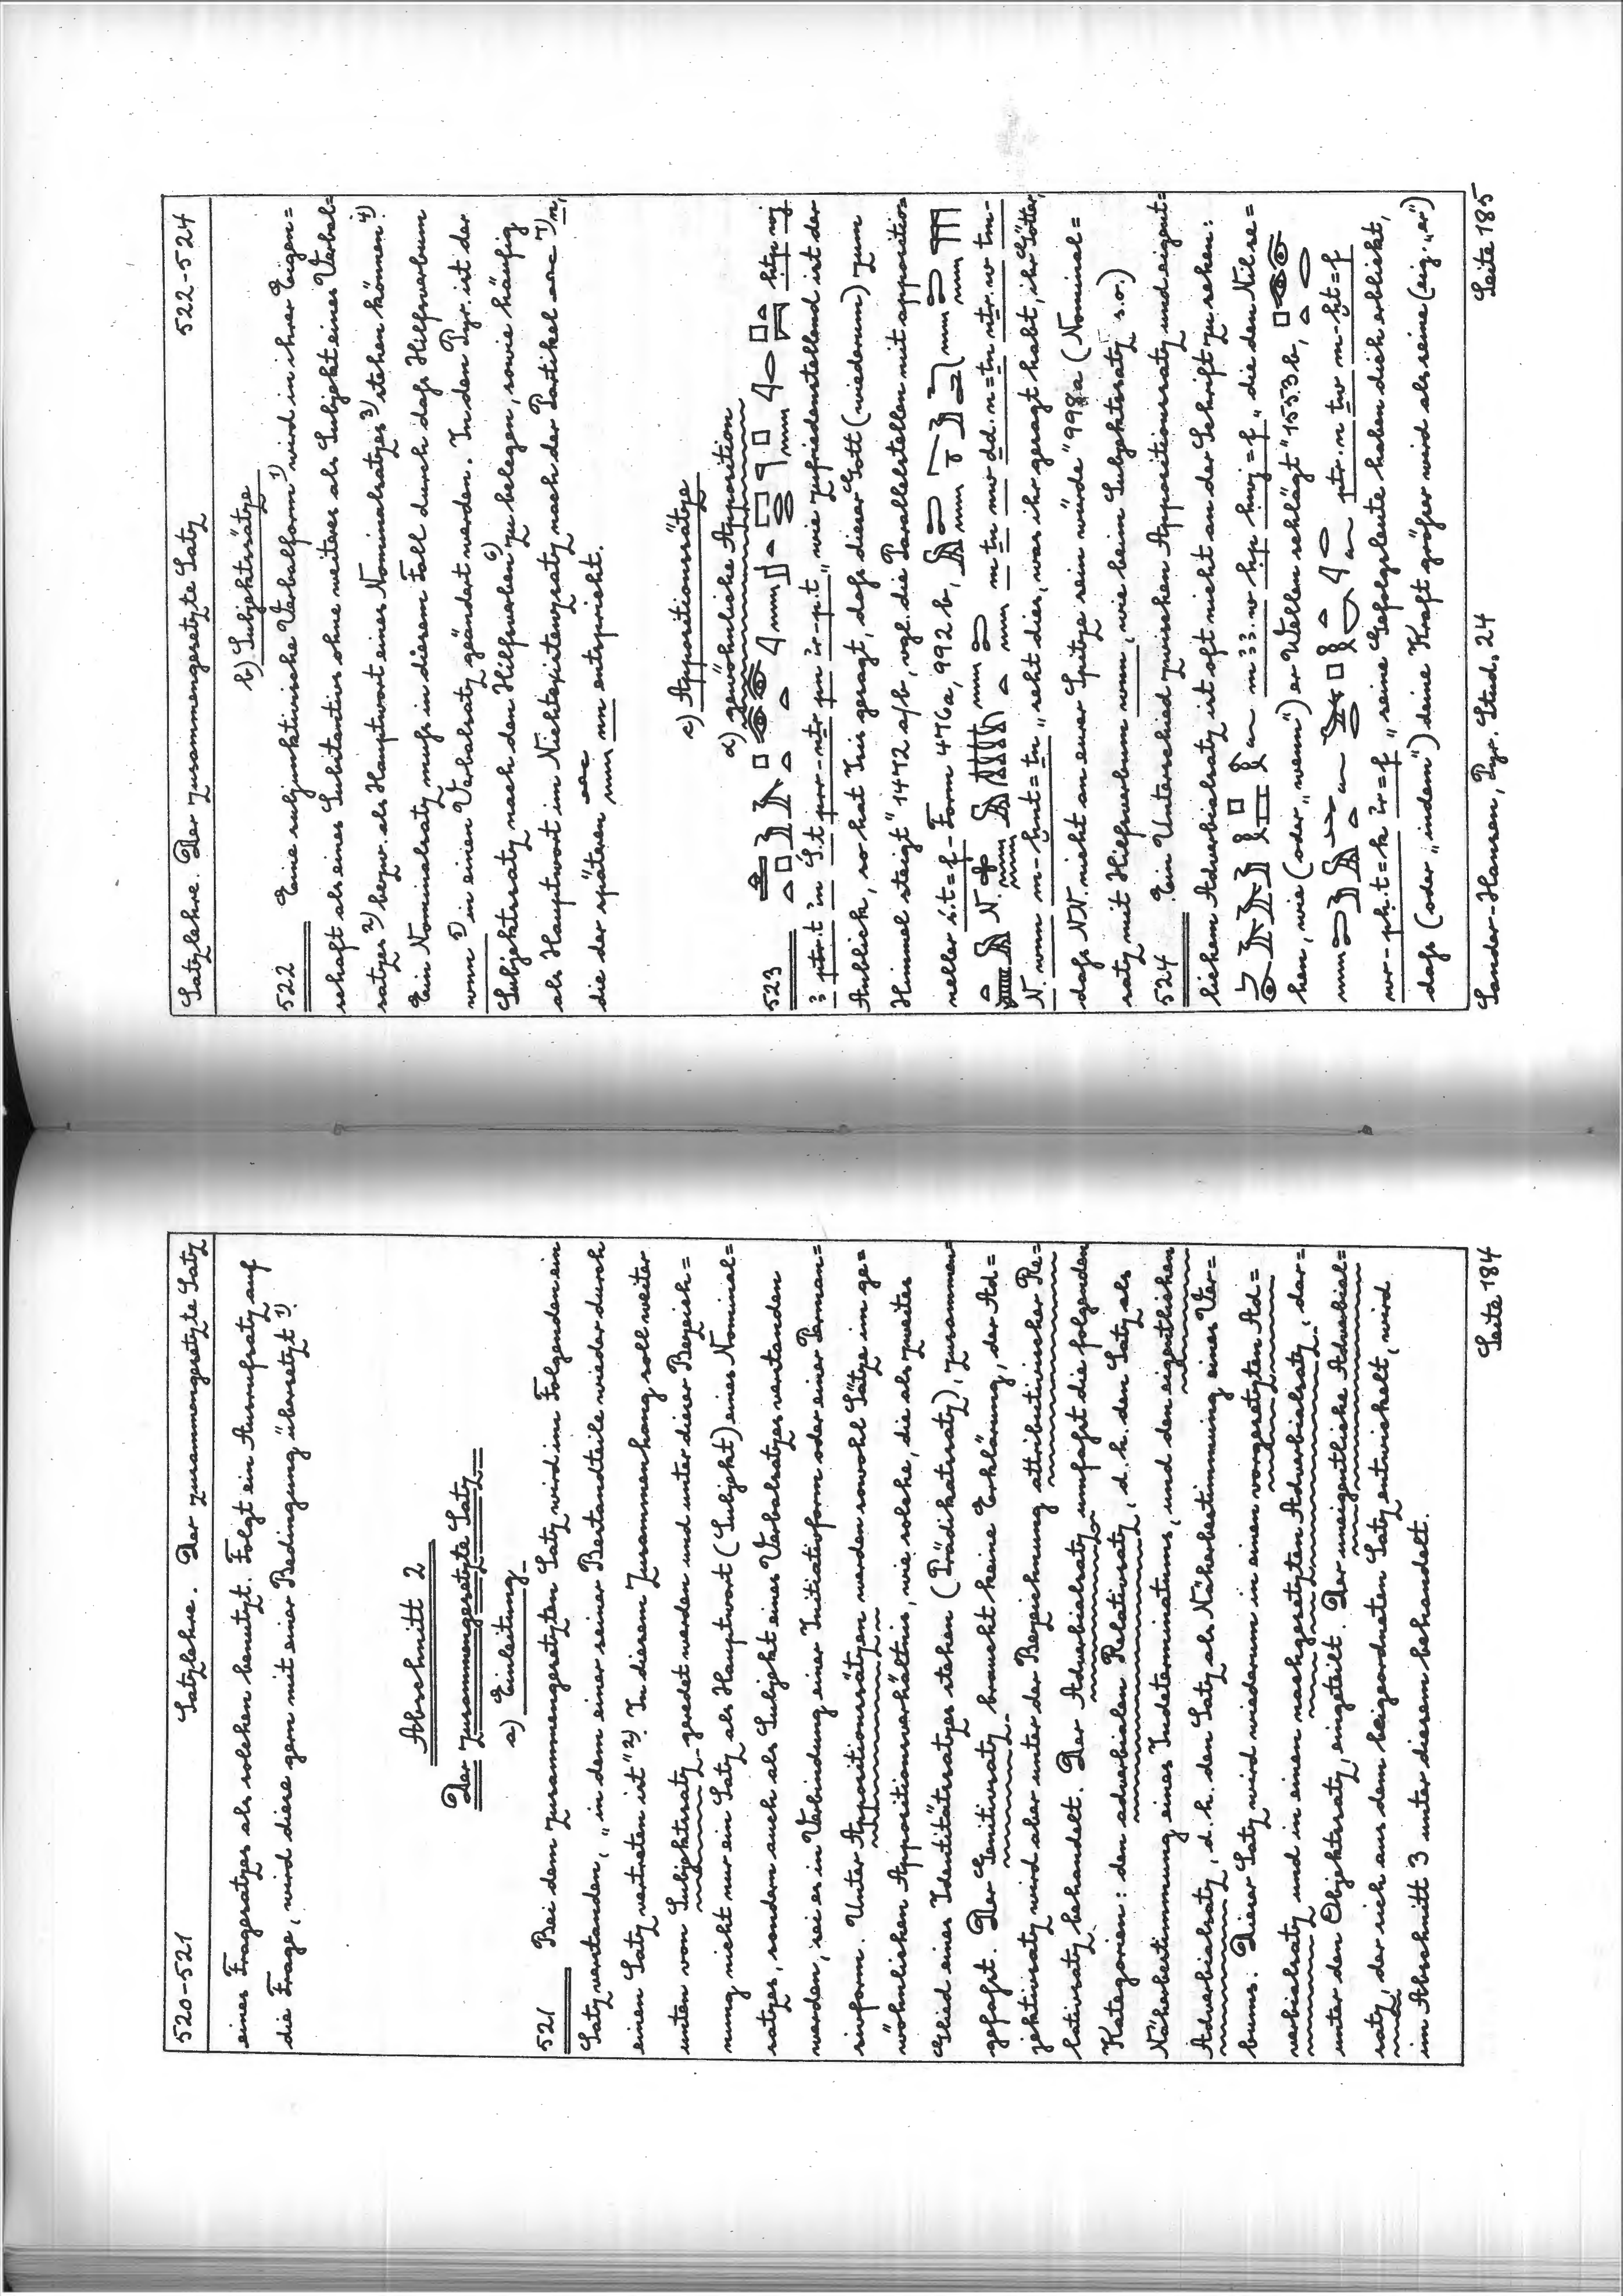 520-521 Satzlehre. Der zusammengesetzte Satz
eines Fragesatzes als solchen benutzt. Folgt ein Ausrufsatz auf
die Frage, wird diese gern mit einer Bedingung übersetzt 1).
Abschnitt 2
Der zusammengesetzte Satz
a) Einleitung
521 Bei dem zusammengesetzten Satz wird im Folgenden ein
Satz verstanden, „in dem einer seiner Bestandteile wieder durch
einen Satz vertreten ist" 2). In diesem Zusammenhang soll weiter
unten von Subjektsatz geredet werden und unter dieser Bezeich=
nung nicht nur ein Satz als Hauptwort (Subjekt) eines Nominal=
satzes, sondern auch als Subjekt eines Verbalsatzes verstanden
werden, sei es in Verbindung einer Initiativform oder einer Perman=
sivform. Unter Appositionssätzen werden sowohl Sätze im ge=
wöhnlichen Appositionsverhältnis, wie solche, die als zweites
Glied eines Identitätssatzes stehen (Prädikatsatz), zusammen=
gefasst. Der Genitivsatz braucht keine Erklärung, der Ad=
jektivsatz wird aber unter der Bezeichnung attributivischer Re=
lativsatz behandelt. Der Adverbialsatz umfasst die folgenden
Kategorien: den adverbialen Relativsatz, d.h. den Satz als
Näherbestimmung eines Indeterminatums, und den eigentlichen
Adverbialsatz, d.h. den Satz als Näherbestimmung eines Ver=
bums. Dieser Satz wird wiederum in einen vorgesetzten Ad=
verbialsatz und in einen nachgesetzten Adverbialsatz, dar=
unter den Objektsatz, eingeteilt. Der uneigentliche Adverbial=
satz, der sich aus dem beigeordneten Satz entwickelt, wird
im Abschnitt 3 unter diesem behandelt.
Seite 184
Satzlehre. Der zusammengesetzte Satz 522-524
b) Subjektsätze
522 Eine subjunktivische Verbalform 1) wird in ihrer Eigen=
schaft als eines Substantivs ohne weiteres als Subjekt eines Verbal=
satzes 2) bezw. als Hauptwort eines Nominalsatzes 3) stehen können 4).
Ein Nominalsatz muss in diesem Fall durch das Hilfsverbum
wnn 5) in einen Verbalsatz geändert werden. In den Pyr. ist der
Subjektsatz nach den Hilfsverben 6) zu belegen, sowie häufig
als Hauptwort im Nichtexistenzsatz nach der Partikel 7) n,
die der späteren nn entspricht.
c) Appositionssätze
α) gewöhnliche Apposition
523 htp wj
3 ptr.t in S.t prr-ntr pn ir-p.t „wie zufriedenstellend ist der
Anblick, so hat Isis gesagt, dass dieser Gott (wiederum) zum
Himmel steigt" 1472 a/b, vgl. die Parallelstellen mit appositio=
neller s.t=f-Form 476a, 992 b,
N. m tn nw dd.n=tn ntr.w tm-
N. wnn m-hnt=tn „seht dies, was ihr gesagt habt, ihr Götter,
dass NN. nicht an eurer Spitze sein würde" 998a (Nominal=
satz mit Hilfsverbum wnn, wie beim Subjektsatz s.o.)
524 Ein Unterschied zwischen Appositionssatz und eigent=
lichem Adverbialsatz ist oft nicht an der Schrift zu sehen:
m33.w hp hwj=f „die den Nil se=
hen, wie (oder „wenn") er Wellen schlägt" 1553 b,
ptr.n tw m-ht=f
wr-ph.t=k ir=f „seine Gefolgsleute haben dich erblickt,
dass (oder „indem") deine Kraft größer wird als seine (eig. „er")
Sander-Hansen, Pyr. Stud. 24 Seite 185